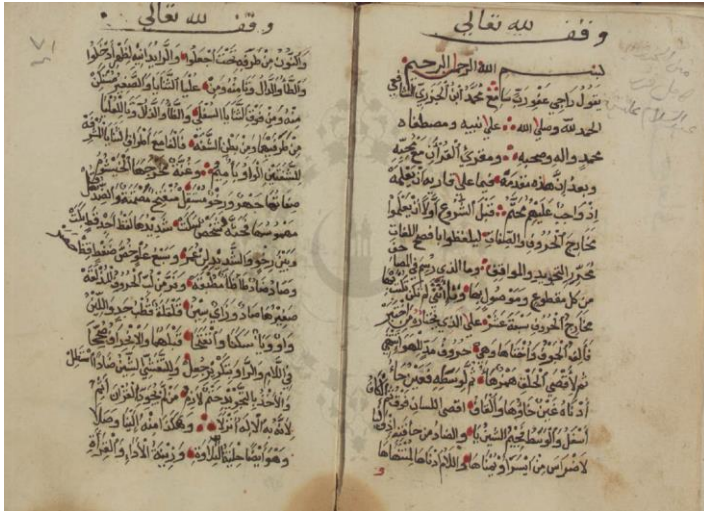 وقف لله تعالى
بسم الله الرحمن الرحيم
يقول راجي عفو رب سامع محمد ابن الجزري الشافعي
الحمد لله وصلى الله على نبيه ومصطفاه
محمد واله وصحبه ومقرئ القرآن مع محبه
وبعد ان هذه مقدمه فيما على قاريه ان يعلمه
اذ واجب عليهم محتم قبل الشروع اولا ان يعلموا
مخارج الحروف والصفات ليلفظوا بافصح اللغات
محرري التجويد والمواقف وما الذي رسم في المصاحف
من كل مقطوع وموصول بها وتاء انثى لم تكن تكتب بها
مخارج الحروف سبعة عشر على الذي يختاره من اختبر
فالف الجوف واختاها وهي حروف مد للهواء تنتهي
ثم لاقصى الحلق همز هاء ثم لوسطه فعين حاء
ادناه غين خاؤها والقاف اقصى اللسان فوق ثم الكاف
اسفل والوسط فجيم الشين يا والضاد من حافته اذ وليا
لاضراس من ايسر او يمناها واللام ادناها لمنتهاها
وقف لله تعالى
والنون من طرفه تحت اجعلوا والرا يدانيه لظهر ادخلوا
والطا والدال وتا منه ومن عليا الثنايا والصفير مستكن
منه ومن فوق الثنايا السفلى والظا والذال وثا للعليا
من طرفيهما ومن بطن الشفة فالفا مع اطراف الثنايا المشرفة
للشفتين الواو باء ميم وغنة مخرجها الخيشوم
صفاتها جهر ورخو مستفل منفتح مصمتة والضد قل
مهموسها فحثه شخص سكت شديدها لفظ اجد قط بكت
وبين رخو والشديد لن عمر وسبع علو خص ضغط قظ حصر
وصاد ضاد طا ظا مطبقة وفر من لب الحروف المذلقة
صفيرها صاد وزاي سين قلقلة قطب جد واللين
واو ويا سكنا وانفتحا قبلهما والانحراف صححا
في اللام والرا وبتكرير جعل وللتفشي الشين ضادا استطل
والاخذ بالتجويد حتم لازم من لم يجود القران اثم
لانه به الاله انزلا وهكذا منه الينا وصلا
وهو ايضا حلية التلاوة وزينة الاداء والقراءة